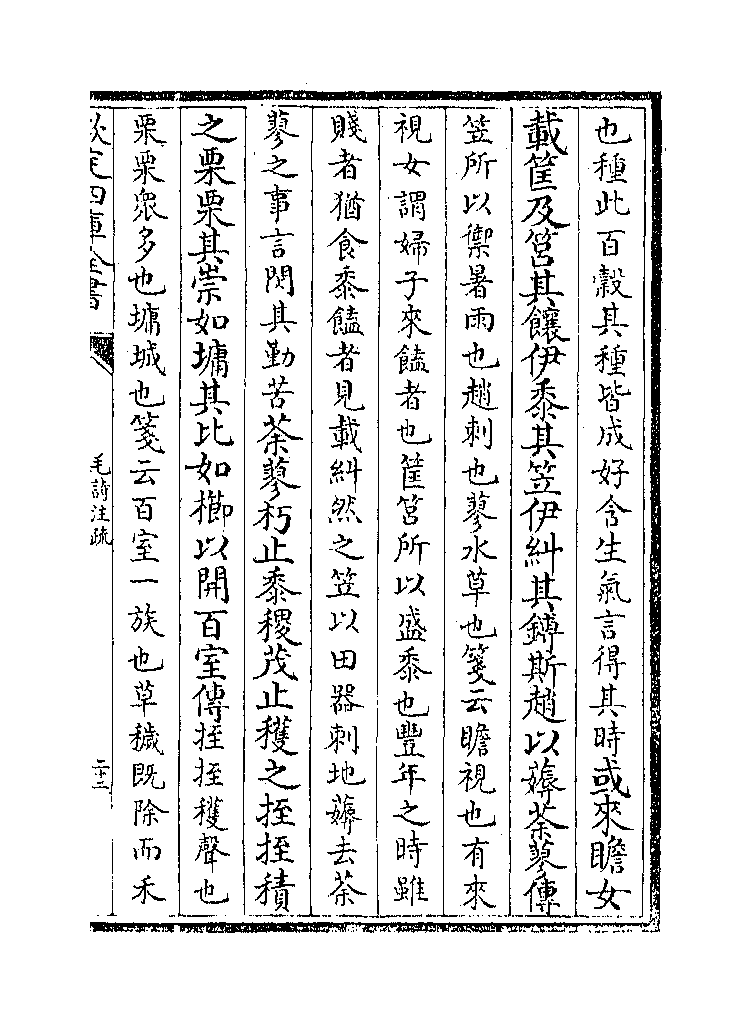 也種此百穀其種皆成好含生氣言得其時或來瞻女
載筐及筥其饟伊黍其笠伊糾其鎛斯趙以薅荼蓼傳
笠所以禦暑雨也趙刺也蓼水草也箋云瞻視也有來
視女謂婦子來饁者也筐筥所以盛黍也豐年之時雖
賤者猶食黍饁者見載糾然之笠以田器刺地薅去荼
蓼之事言閔其勤苦荼蓼朽止黍稷茂止穫之挃挃積
之栗栗其崇如墉其比如櫛以開百室傳挃挃穫聲也
栗栗衆多也墉城也箋云百室一族也草穢既除而禾
欽定四庫全書
毛詩注疏
二十二